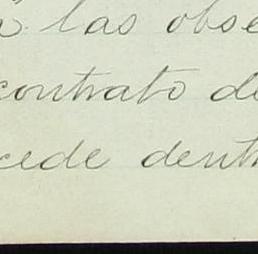 las obse
contrato de
cede dent